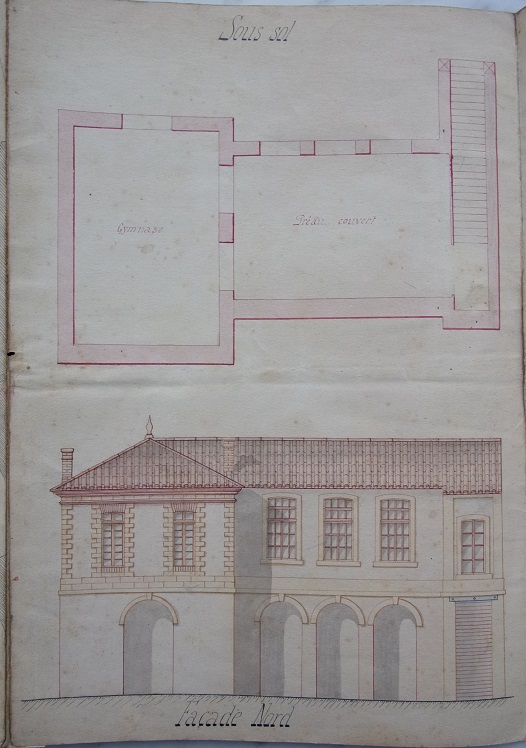 Sous sol
Gymnase
Préau couvert
Façade Nord